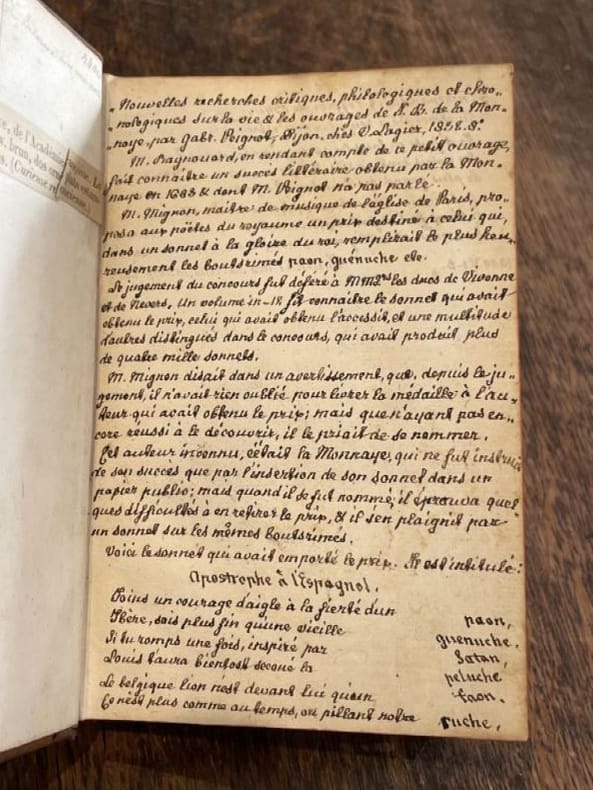 „ Nouvelles recherches critiques, philologiques et chro„
„ nologiques sur la vie & les ouvrages de J. B. de la Mon„
noye, par Gabr. Peignot, Dijon, chés V. Lagier, 1832. 8º
M. Raynouard, en rendant compte de ce petit ouvrage,
fait connaitre un succès littéraire obtenu par la Mon„
naye en 1683 & dont M. Peignot n'a pas parlé.
M. Mignon, maître de musique de l'église de Paris, pro„
posa aux poëtes du royaume un prix destiné à celui qui,
dans un sonnet à la gloire du roi, remplirait le plus heu„
reusement les boutsrimés paon, guénuche etc.
Le jugement du concours fut déféré à MM.rs les ducs de Vivonne
et de Nevers, Un volume in-12 fit connaitre le sonnet qui avait
obtenu le prix, celui qui avait obtenu l'accessit, et une multitude
d'autres distingués dans le concours, qui avait produit plus
de quatre mille sonnets.
M. Mignon disait dans un avertissement, que, depuis le ju„
gement, il n'avait rien oublié pour livrer la médaille à l'au„
teur qui avait obtenu le prix; mais que n'ayant pas en„
core réussi à le découvrir, il le priait de se nommer.
Cet auteur inconnu, c'était la Monnaye, qui ne fut instruit
de son succès que par l'insertion de son sonnet dans un
papier public; mais quand il se fut nommé, il éprouva quel
ques difficultés à en retirer le prix, & il s'en plaignit par
un sonnet sur les mêmes boutsrimés.
Voici le sonnet qui avait emporté le prix. Il est intitulé:
Apostrophe à l'Espagnol.
Joins un courage d'aigle à la fierté d'un paon,
Ibère, sois plus fin qu'une vieille guenuche.
Si tu romps une fois, inspiré par Satan,
Louis t'aura bientost secoué la peluche.
Le belgique lion n'est devant lui qu'un faon.
Ce n'est plus comme au temps, où pillant notre ruche,
de l'Académie
brun, dos orné
(Curieuse et